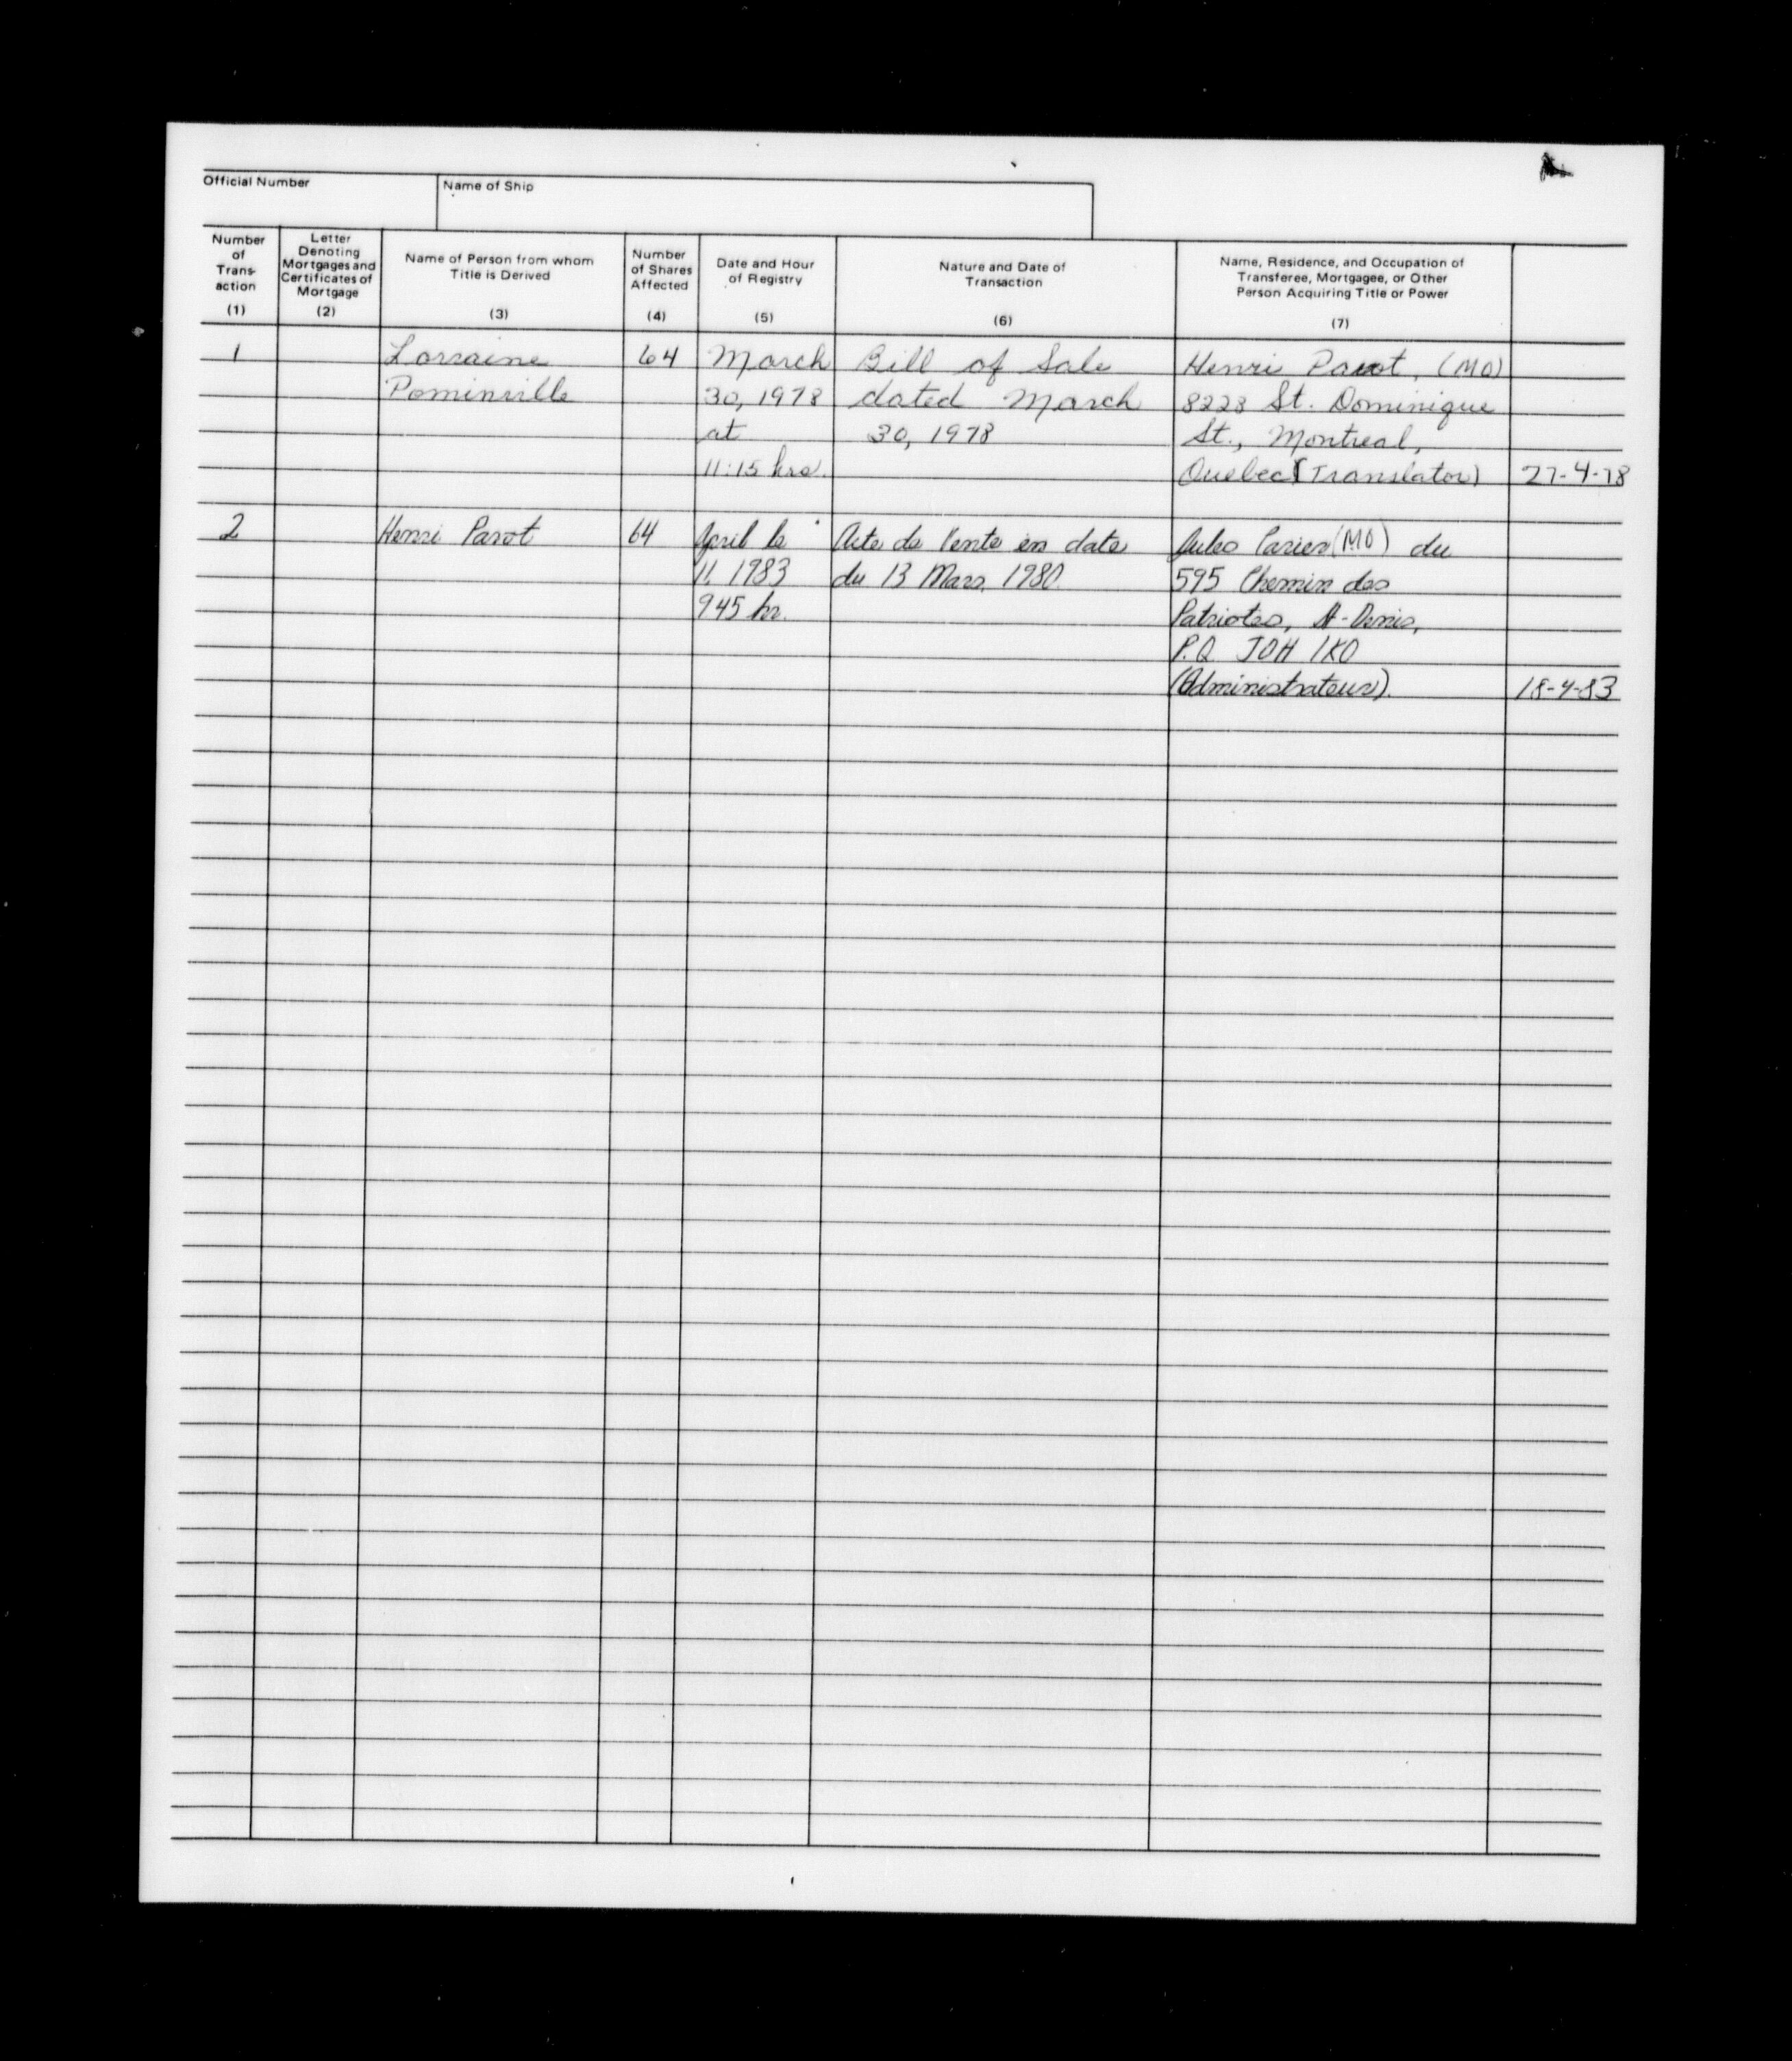 Official Number
Name of Ship
Number of Trans-action (1)
Letter Denoting Mortgages and Certificates of Mortgage (2)
Name of Person from whom Title is Derived (3)
Number of Shares Affected (4)
Date and Hour of Registry (5)
Nature and Date of Transaction (6)
Name, Residence, and Occupation of Transferee, Mortgagee, or Other Person Acquiring Title or Power (7)
1 Lorraine 64 March Bill of Sale Henri Parot, (MO)
Pominville 30, 1978 dated March 8228 St. Dominique
at 30, 1978 St., Montreal,
11:15 hrs. Quebec (Translator) 27-4-78
2 Henri Parot 64 April le Acte de Vente en date Jules (MO) du
11, 1983 du 13 Mars, 1980. 595 Chemin des
945 hr. Patriotes, St-Denis,
P.Q. J0H 1K0
(Administrateur). 18-4-83